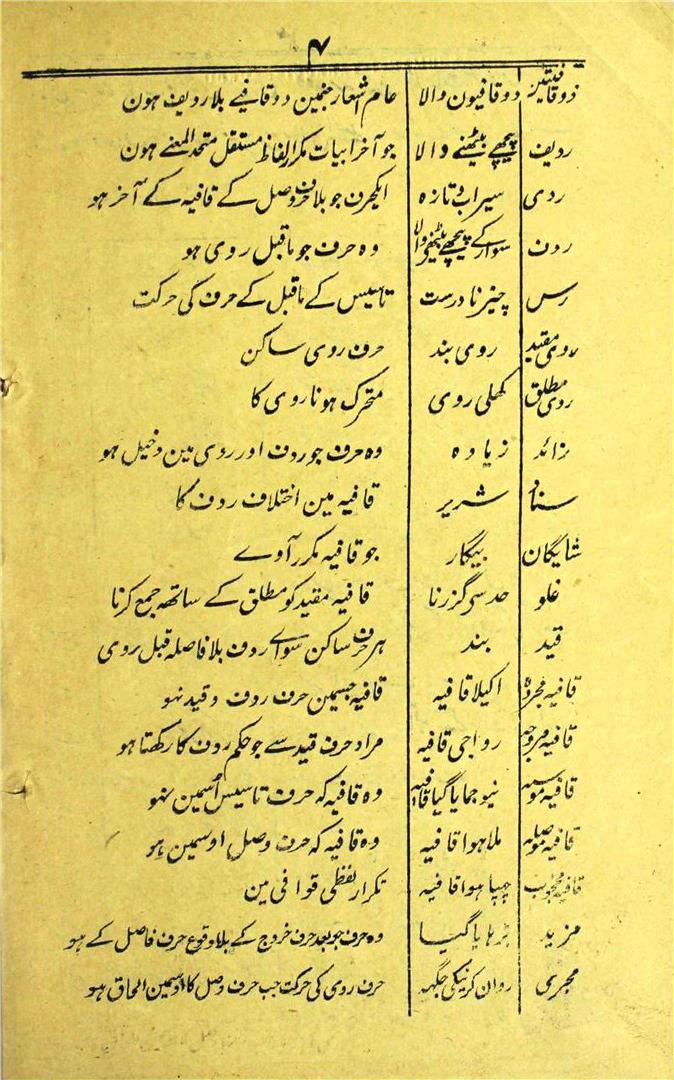 ۴
ذوقافیتین دوقافیون والا عام اشعار جنمین دوقافیے بلاردیف ہون
ردیف پیچھے بیٹھنے والا جو آخر ابیات مکرر الفاظ مستقل متحد المعنے ہون
روی سیراب و تازہ ایکحرف جو بلا حرف وصل کے قافیہ کے آخر ہو
ردف سوار کے پیچھے بیٹھنے والا وہ حرف جو ماقبل روی ہو
رس چیز نادرست تاسیس کے ماقبل کے حرف کی حرکت
روی مقید روی بند حرف روی ساکن
روی مطلق کھلی روی متحرک ہونا روی کا
زائد زیادہ وہ حرف جو ردف اور روی مین دخیل ہو
سناد شریر قافیہ مین اختلاف ردف کا
شایگان بیگار جو قافیہ مکرر آوے
غلو حد سی گزرنا قافیہ مقید کو مطلق کے ساتھ جمع کرنا
قید بند ہر حرف ساکن سواے ردف بلا فاصلہ قبل روی
قافیہ مجردہ اکیلا قافیہ قافیہ جسمین حرف ردف و قید نہو
قافیہ مروجہ رواجی قافیہ مراد حرف قید سے جو حکم ردف کا رکھتا ہو
قافیہ موسسہ نیو جمایا گیا قافیہ وہ قافیہ کہ حرف تاسیس اُسمین نہو
قافیہ موصلہ ملا ہوا قافیہ وہ قافیہ کہ حرف وصل اوسمین ہو
قافیہ محجوب چھپا ہوا قافیہ تکرار لفظی قوافی مین
مزید بڑہایا گیا وہ حرف جو بعد حرف خروج کے بلا وقوع حرف فاصل کے ہو
مجری روان کرنیکی جگہہ حرف روی کی حرکت جب حرف وصل کا اوسمین الحاق ہو